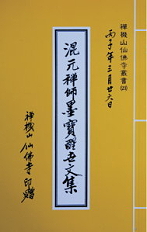 禪機山仙佛寺叢書㈣
丙子年三月廿六日
混元禪師墨寶醒世文集
禪機山仙佛寺印贈